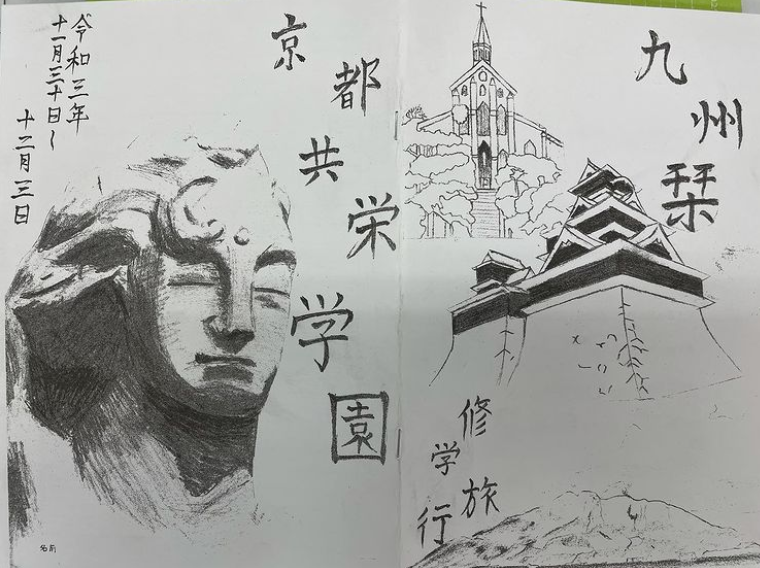 九州栞
修学旅行
京都共栄学園
令和三年
十一月三十日〜
十二月三日
名前